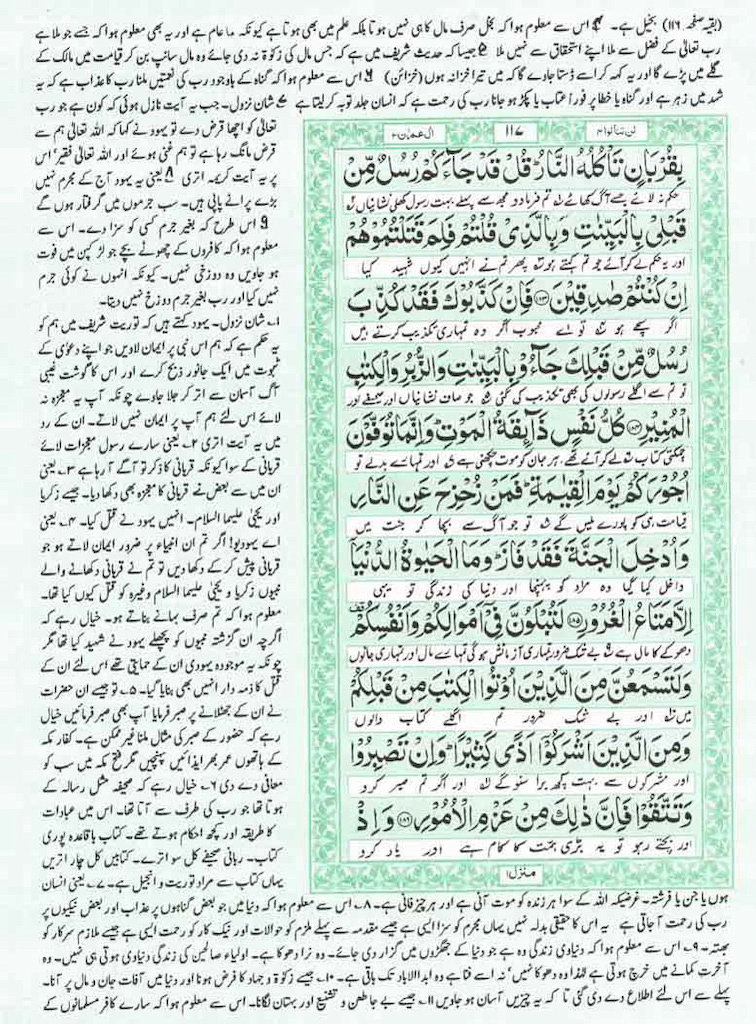 (بقیہ صفحہ ۱۱۶) بخیل ہے۔ ۴ اس سے معلوم ہوا کہ بخل صرف مال کا ہی نہیں ہوتا بلکہ علم میں بھی ہوتا ہے کیونکہ ما عام ہے اور یہ بھی معلوم ہوا کہ جسے جو ملا ہے
رب تعالیٰ کے فضل سے ملا اپنے استحقاق سے نہیں ملا ۵ جیسا کہ حدیث شریف میں ہے کہ جس مال کی زکوٰۃ نہ دی جائے وہ مال سانپ بن کر قیامت میں مالک کے
گلے میں پڑے گا اور یہ کہہ کر اسے ڈستا جاوے گا کہ میں تیرا خزانہ ہوں (خزائن) ۶ اس سے معلوم ہوا کہ گناہ کے باوجود رب کی نعمتیں ملنا رب کا عذاب ہے کہ یہ
شہد میں زہر ہے اور گناہ یا خطا پر فوراً عتاب یا پکڑ ہو جانا رب کی رحمت ہے کہ انسان جلد توبہ کر لیتا ہے ۷ شان نزول۔ جب یہ آیت نازل ہوئی کہ کون ہے جو رب
تعالیٰ کو اچھا قرض دے تو یہود نے کہا کہ اللہ تعالیٰ ہم سے
قرض مانگ رہا ہے تو ہم غنی ہوئے اور اللہ تعالیٰ فقیر' اس
پر یہ آیت کریمہ اتری ۸ یعنی یہ یہود آج کے مجرم نہیں
بڑے پرانے پاپی ہیں۔ سب جرموں میں گرفتار ہوں گے
۹ اس طرح کہ بغیر جرم کسی کو سزا دے۔ اس سے
معلوم ہوا کہ کافروں کے چھوٹے بچے جو لڑکپن میں فوت
ہو جاویں وہ دوزخی نہیں۔ کیونکہ انہوں نے کوئی جرم
نہیں کیا اور رب بغیر جرم دوزخ نہیں دیتا۔
۱۔ شان نزول۔ یہود کہتے ہیں کہ توریت شریف میں ہم کو
یہ حکم ہے کہ ہم اس نبی پر ایمان لاویں جو اپنے دعویٰ کے
ثبوت میں ایک جانور ذبح کرے اور اس کا گوشت غیبی
آگ آسمان سے اتر کر جلا جاوے چونکہ آپ یہ معجزہ نہ
لائے اس لئے ہم آپ پر ایمان نہیں لاتے۔ ان کے رد
میں یہ آیت اتری ۲۔ یعنی سارے رسول معجزات لائے
قربانی کے سوا کیونکہ قربانی کا ذکر تو آگے آ رہا ہے ۳۔ یعنی
ان میں سے بعض نے قربانی کا معجزہ بھی دکھا دیا۔ جیسے زکریا
اور یحییٰ علیہما السلام۔ انہیں یہود نے قتل کیا۔ ۴۔ یعنی
اے یہودیو! اگر تم ان انبیاء پر ضرور ایمان لاتے ہو جو
قربانی پیش کر کے دکھا دیں تو تم نے قربانی دکھانے والے
نبیوں زکریا و یحییٰ علیہما السلام وغیرہ کو قتل کیوں کیا تھا۔
معلوم ہوا کہ تم صرف بہانے بناتے ہو۔ خیال رہے کہ
اگرچہ ان گزشتہ نبیوں کو پچھلے یہود نے شہید کیا تھا مگر
چونکہ یہ موجودہ یہودی ان کے حمایتی تھے اس لئے ان کے
قتل کا ذمہ دار انہیں بھی بنایا گیا۔ ۵۔ تو جیسے ان حضرات
نے ان کے جھٹلانے پر صبر فرمایا آپ بھی صبر فرمائیں خیال
رہے کہ حضور کے صبر کی مثال ملنا غیر ممکن ہے۔ کفار مکہ
کے ہاتھوں عمر بھر ایذائیں پہنچیں مگر فتح مکہ میں سب کو
معافی دے دی ۶۔ خیال رہے کہ صحیفہ مثل رسالہ کے
ہوتا تھا جو رب کی طرف سے آتا تھا۔ اس میں عبادات
کا طریقہ اور کچھ احکام ہوتے تھے۔ کتاب باقاعدہ پوری
کتاب۔ ربانی صحیفے کل سو اترے۔ کتابیں کل چار اتریں
یہاں کتاب سے مراد توریت و انجیل ہے۔ ۷۔ یعنی انسان
لن تنالوا ۴
۱۱۷
آل عمران ۳
بِقُرْبَانٍ تَاْكُلُهُ النَّارُ قُلْ قَدْ جَآءَكُمْ رُسُلٌ مِّنْ
حکم نہ لائے جسے آگ کھائے تم فرما دو مجھ سے پہلے بہت رسول کھلی نشانیاں
قَبْلِيْ بِالْبَيِّنٰتِ وَبِالَّذِيْ قُلْتُمْ فَلِمَ قَتَلْتُمُوْهُمْ
اور یہ حکم لے کر آئے جو تم کہتے ہو پھر تم نے انہیں کیوں شہید کیا
اِنْ كُنْتُمْ صٰدِقِيْنَ ۱۸۳ فَاِنْ كَذَّبُوْكَ فَقَدْ كُذِّبَ
اگر سچے ہو تو اے محبوب اگر وہ تمہاری تکذیب کرتے ہیں
رُسُلٌ مِّنْ قَبْلِكَ جَآءُوْ بِالْبَيِّنٰتِ وَالزُّبُرِ وَالْكِتٰبِ
تو تم سے اگلے رسولوں کی بھی تکذیب کی گئی جو صاف نشانیاں اور صحیفے اور
الْمُنِيْرِ ۱۸۴ كُلُّ نَفْسٍ ذَآىِٕقَةُ الْمَوْتِ وَاِنَّمَا تُوَفَّوْنَ
چمکتی کتاب لے کر آئے تھے ہر جان کو موت چکھنی ہے اور تمہارے بدلے تو
اُجُوْرَكُمْ يَوْمَ الْقِيٰمَةِ فَمَنْ زُحْزِحَ عَنِ النَّارِ
قیامت ہی کو پورے ملیں گے جو آگ سے بچا کر جنت میں
وَاُدْخِلَ الْجَنَّةَ فَقَدْ فَازَ وَمَا الْحَيٰوةُ الدُّنْيَآ
داخل کیا گیا وہ مراد کو پہنچا اور دنیا کی زندگی تو یہی
اِلَّا مَتَاعُ الْغُرُوْرِ ۱۸۵ لَتُبْلَوُنَّ فِيْٓ اَمْوَالِكُمْ وَاَنْفُسِكُمْ
دھوکے کا مال ہے بے شک ضرور تمہاری آزمائش ہوگی تمہارے مال اور تمہاری جانوں
وَلَتَسْمَعُنَّ مِنَ الَّذِيْنَ اُوْتُوا الْكِتٰبَ مِنْ قَبْلِكُمْ
میں اور بے شک ضرور تم اگلے کتاب والوں
وَمِنَ الَّذِيْنَ اَشْرَكُوْٓا اَذًى كَثِيْرًا وَاِنْ تَصْبِرُوْا
اور مشرکوں سے بہت کچھ برا سنو گے اور اگر تم صبر کرو
وَتَتَّقُوْا فَاِنَّ ذٰلِكَ مِنْ عَزْمِ الْاُمُوْرِ ۱۸۶ وَاِذْ
اور بچتے رہو تو یہ بڑی ہمت کا کام ہے اور یاد کرو
منزل ۱
ہوں یا جن یا فرشتہ۔ غرضیکہ اللہ کے سوا ہر زندہ کو موت آنی ہے اور ہر چیز فانی ہے۔ ۸۔ اس سے معلوم ہوا کہ دنیا میں جو بعض گناہوں پر عذاب اور بعض نیکیوں پر
رب کی رحمت آ جاتی ہے یہ اس کا حقیقی بدلہ نہیں یہاں مجرم کو سزا ایسی ہے جیسے مقدمہ سے پہلے ملزم کو حوالات اور نیک کار کو رحمت ایسی ہے جیسے ملازم سرکار کو
بھتہ۔ ۹۔ اس سے معلوم ہوا کہ دنیاوی زندگی وہ ہے جو دنیا کے جھگڑوں میں گزار دی جائے۔ وہ نرا دھوکا ہے۔ اولیاء صالحین کی زندگی دنیاوی ہوتی ہی نہیں۔ وہ
آخرت کمانے میں خرچ ہوتی ہے لہٰذا وہ دھوکا نہیں' نہ اسے فنا ہے وہ ابدالاباد تک باقی ہے۔ ۱۰۔ جیسے زکوٰۃ و جہاد کا فرض ہونا اور دنیا میں آفات جان و مال پر آنا۔
پہلے سے اس لئے اطلاع دے دی گئی تا کہ یہ چیزیں آسان ہو جاویں ۱۱۔ جیسے بے جا طعن و تشنیع اور بہتان لگانا۔ اس سے معلوم ہوا کہ سارے کافر مسلمانوں کے